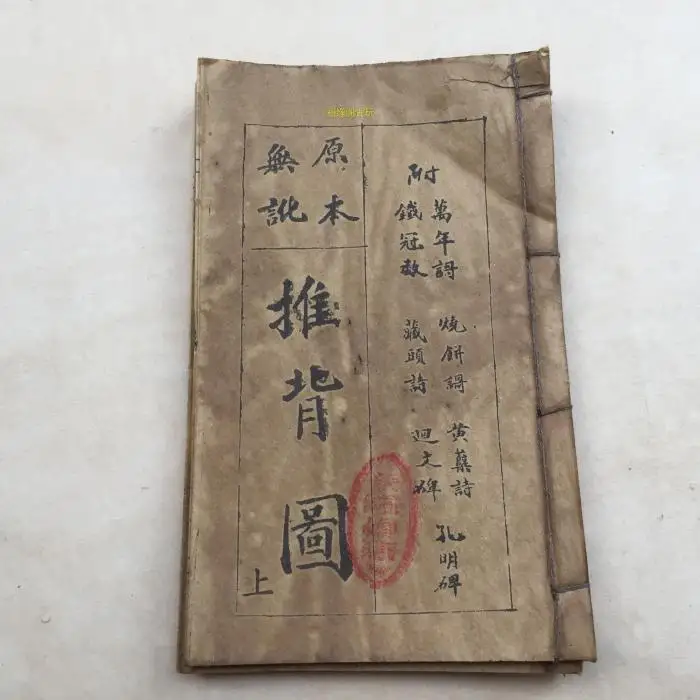 附
萬年謌 燒餅謌 黄蘗詩 孔明碑
鐵冠數 藏頭詩 迴文碑
原本
無訛
推背圖
上